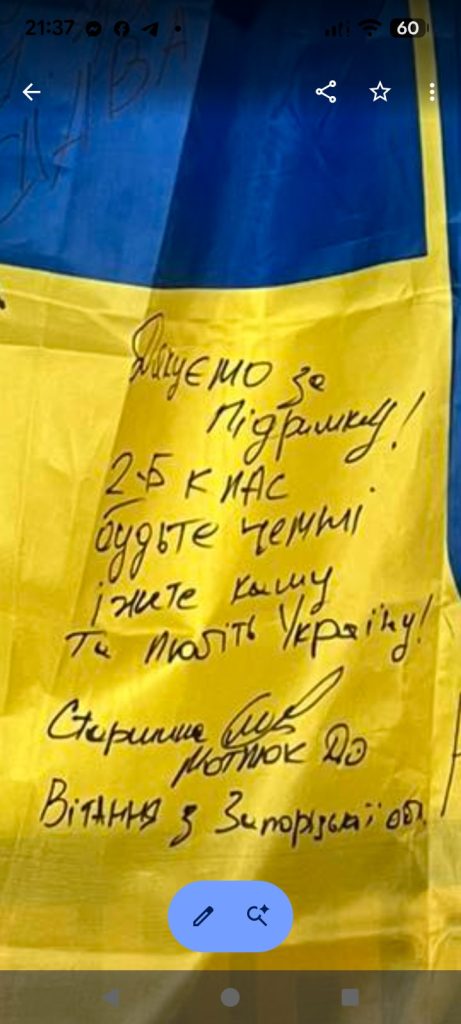 21:37 60
Дякуємо за
підримку!
2-Б КЛАС
будьте чемні
іжте кашу
та любіть Україну!
Старшина
ДО
Вітання з Запорізької обл.